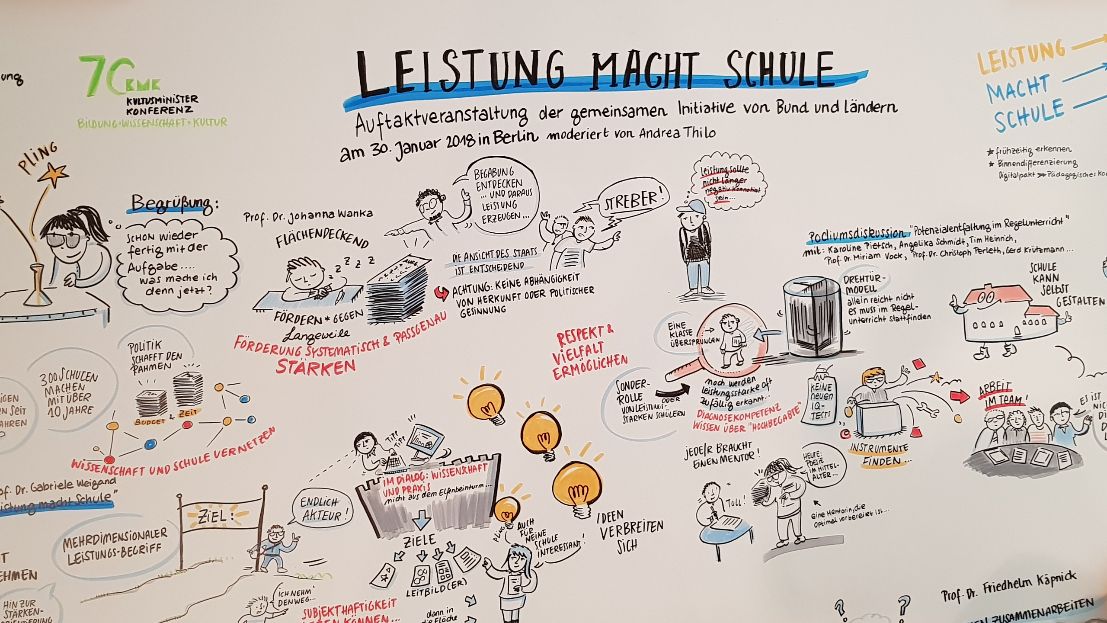 ung
70
KMK
KULTUSMINISTER
KONFERENZ
BILDUNG·WISSENSCHAFT·KULTUR
LEISTUNG MACHT SCHULE
Auftaktveranstaltung der gemeinsamen Initiative von Bund und Ländern
am 30. Januar 2018 in Berlin moderiert von Andrea Thilo
LEISTUNG
MACHT
SCHULE
* frühzeitig erkennen
* Binnendifferenzierung
Digitalpakt
PLING
Begrüßung:
SCHON WIEDER
FERTIG MIT DER
AUFGABE....
WAS MACHE ICH
DENN JETZT?
Prof. Dr. Johanna Wanka
FLÄCHENDECKEND
Z Z Z Z Z
FÖRDERN * GEGEN
Langeweile
BEGABUNG
ENTDECKEN
... UND DARAUS
LEISTUNG
ERZEUGEN ...
DIE ANSICHT DES STAATS
IST ENTSCHEIDEND
ACHTUNG: KEINE ABHÄNGIGKEIT
VON HERKUNFT ODER POLITISCHER
GESINNUNG
FÖRDERUNG SYSTEMATISCH & PASSGENAU
STÄRKEN
STREBER!
Leistung sollte
nicht länger
sein...
RESPEKT &
VIELFALT
ERMÖGLICHEN
Podiumsdiskussion "Potenzialentfaltung im Regelunterricht"
mit: Karoline Pietsch, Angelika Schmidt, Tim Heinrich,
Prof. Dr. Miriam Vock, Prof. Dr. Christoph Perleth, Gerd
DREHTÜR-
MODELL
allein reicht nicht
es muss im Regel-
unterricht stattfinden
SCHULE
KANN
SELBST
GESTALTEN
EINE
KLASSE
ÜBERSPRUNGEN
SONDER-
ROLLE
VON LEISTUNGS-
STARKEN SCHÜLERN
ODER
noch werden
leistungsstarke oft
zufällig erkannt.
DIAGNOSEKOMPETENZ
WISSEN ÜBER "HOCHBEGABTE"
KEINE
NEUEN
IQ-
TEST!
INSTRUMENTE
FINDEN...
ARBEIT
IM TEAM!
ES IST
POLITIK
SCHAFFT DEN
RAHMEN
300 SCHULEN
MACHEN
MIT ÜBER
10 JAHRE
& ZEIT
BUDGET
WISSENSCHAFT UND SCHULE VERNETZEN
Dr. Gabriele Weigand
macht Schule"
MEHRDIMENSIONALER
LEISTUNGS-BEGRIFF
ZIEL:
ENDLICH
AKTEUR!
ICH NEHM'
DEN WEG...
HIN ZUR
STÄRKEN-
SUBJEKTHAFTIGKEIT
KÖNNEN...
TIPP
TIPP
IM DIALOG: WISSENSCHAFT
UND PRAXIS
nicht aus dem Elfenbeinturm...
ZIELE
LEITBILD(ER)
dann in
die Fläche
AUCH
FÜR
MEINE
SCHULE
INTERESSANT!
IDEEN
VERBREITEN
SICH
JEDE/R BRAUCHT
EINEN MENTOR!
TOLL!
HEUTE:
POESIE
IM MITTEL-
ALTER...
eine Mentorin, die
optimal vorbereitet ist...
? ?
Prof. Dr. Friedhelm Käpnick
ZUSAMMENARBEITEN